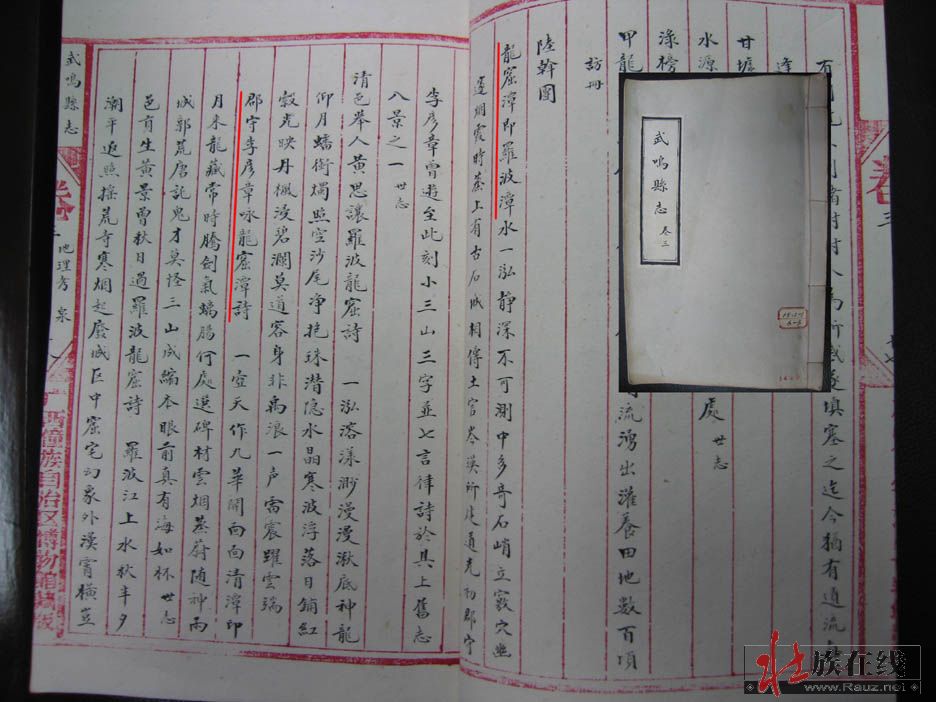 填塞之迄今猶有道流
甘墟
水源
處 世志
渌榜
甲龍
流湧出灌養田地數百頃
訪冊
陸斡圖
龍窟潭即羅波潭水一泓静深不可測中多奇石峭立竅穴幽
邃烟霞時蒸上有古石城相傳土官岑漢所建道光初郡守
李彦章曾遊至此刻小三山三字並七言律詩於其上舊志
八景之一 世志
清邑舉人黄思讓羅波龍窟詩 一泓溶漾渺漫漫湫底神龍
仰月蟠銜燭照空沙尾净抱珠潜隐水晶寒波浮落日鋪紅
縠光映丹楓漫碧瀾莫道容身非禹浪一声雷震躍雲端
郡守李彦章咏龍窟潭詩 一壺天作九華開面面清潭印
月來龍藏常時騰劍氣螭腸何處選碑材雲烟蒸蔚随神雨
城郭荒唐託鬼才莫怪三山成縮本眼前真有海如杯 世志
邑育生黄景曾秋日過羅波龍窟詩 羅波江上水秋半夕
潮平返照摇荒寺寒烟起廢城巨中窟宅幻象外漢霄横豈
武鳴縣志
卷三 地理考 泉
广西僮族自治区博物館
武鳴縣志 卷三
壮族在线
www.Rauz.net